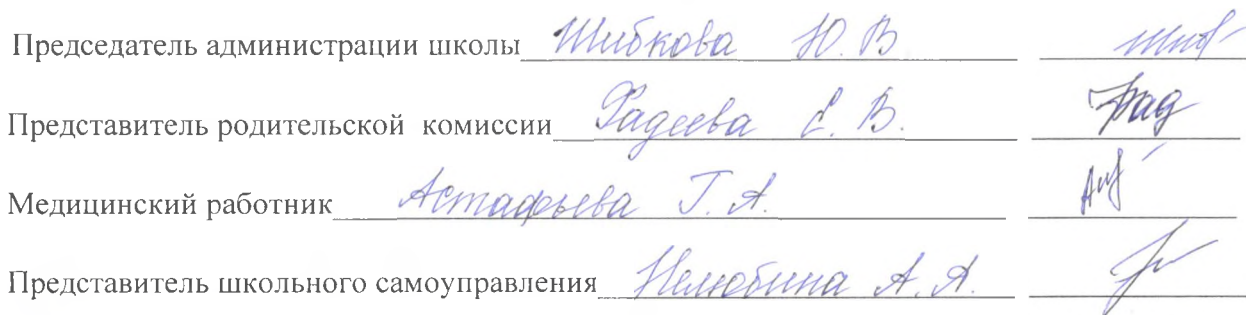 Председатель администрации школы Шибкова Ю. В
Представитель родительской комиссии Фадеева Е. В.
Медицинский работник Астафьева Г. А.
Представитель школьного самоуправления Нелюбина А. А.